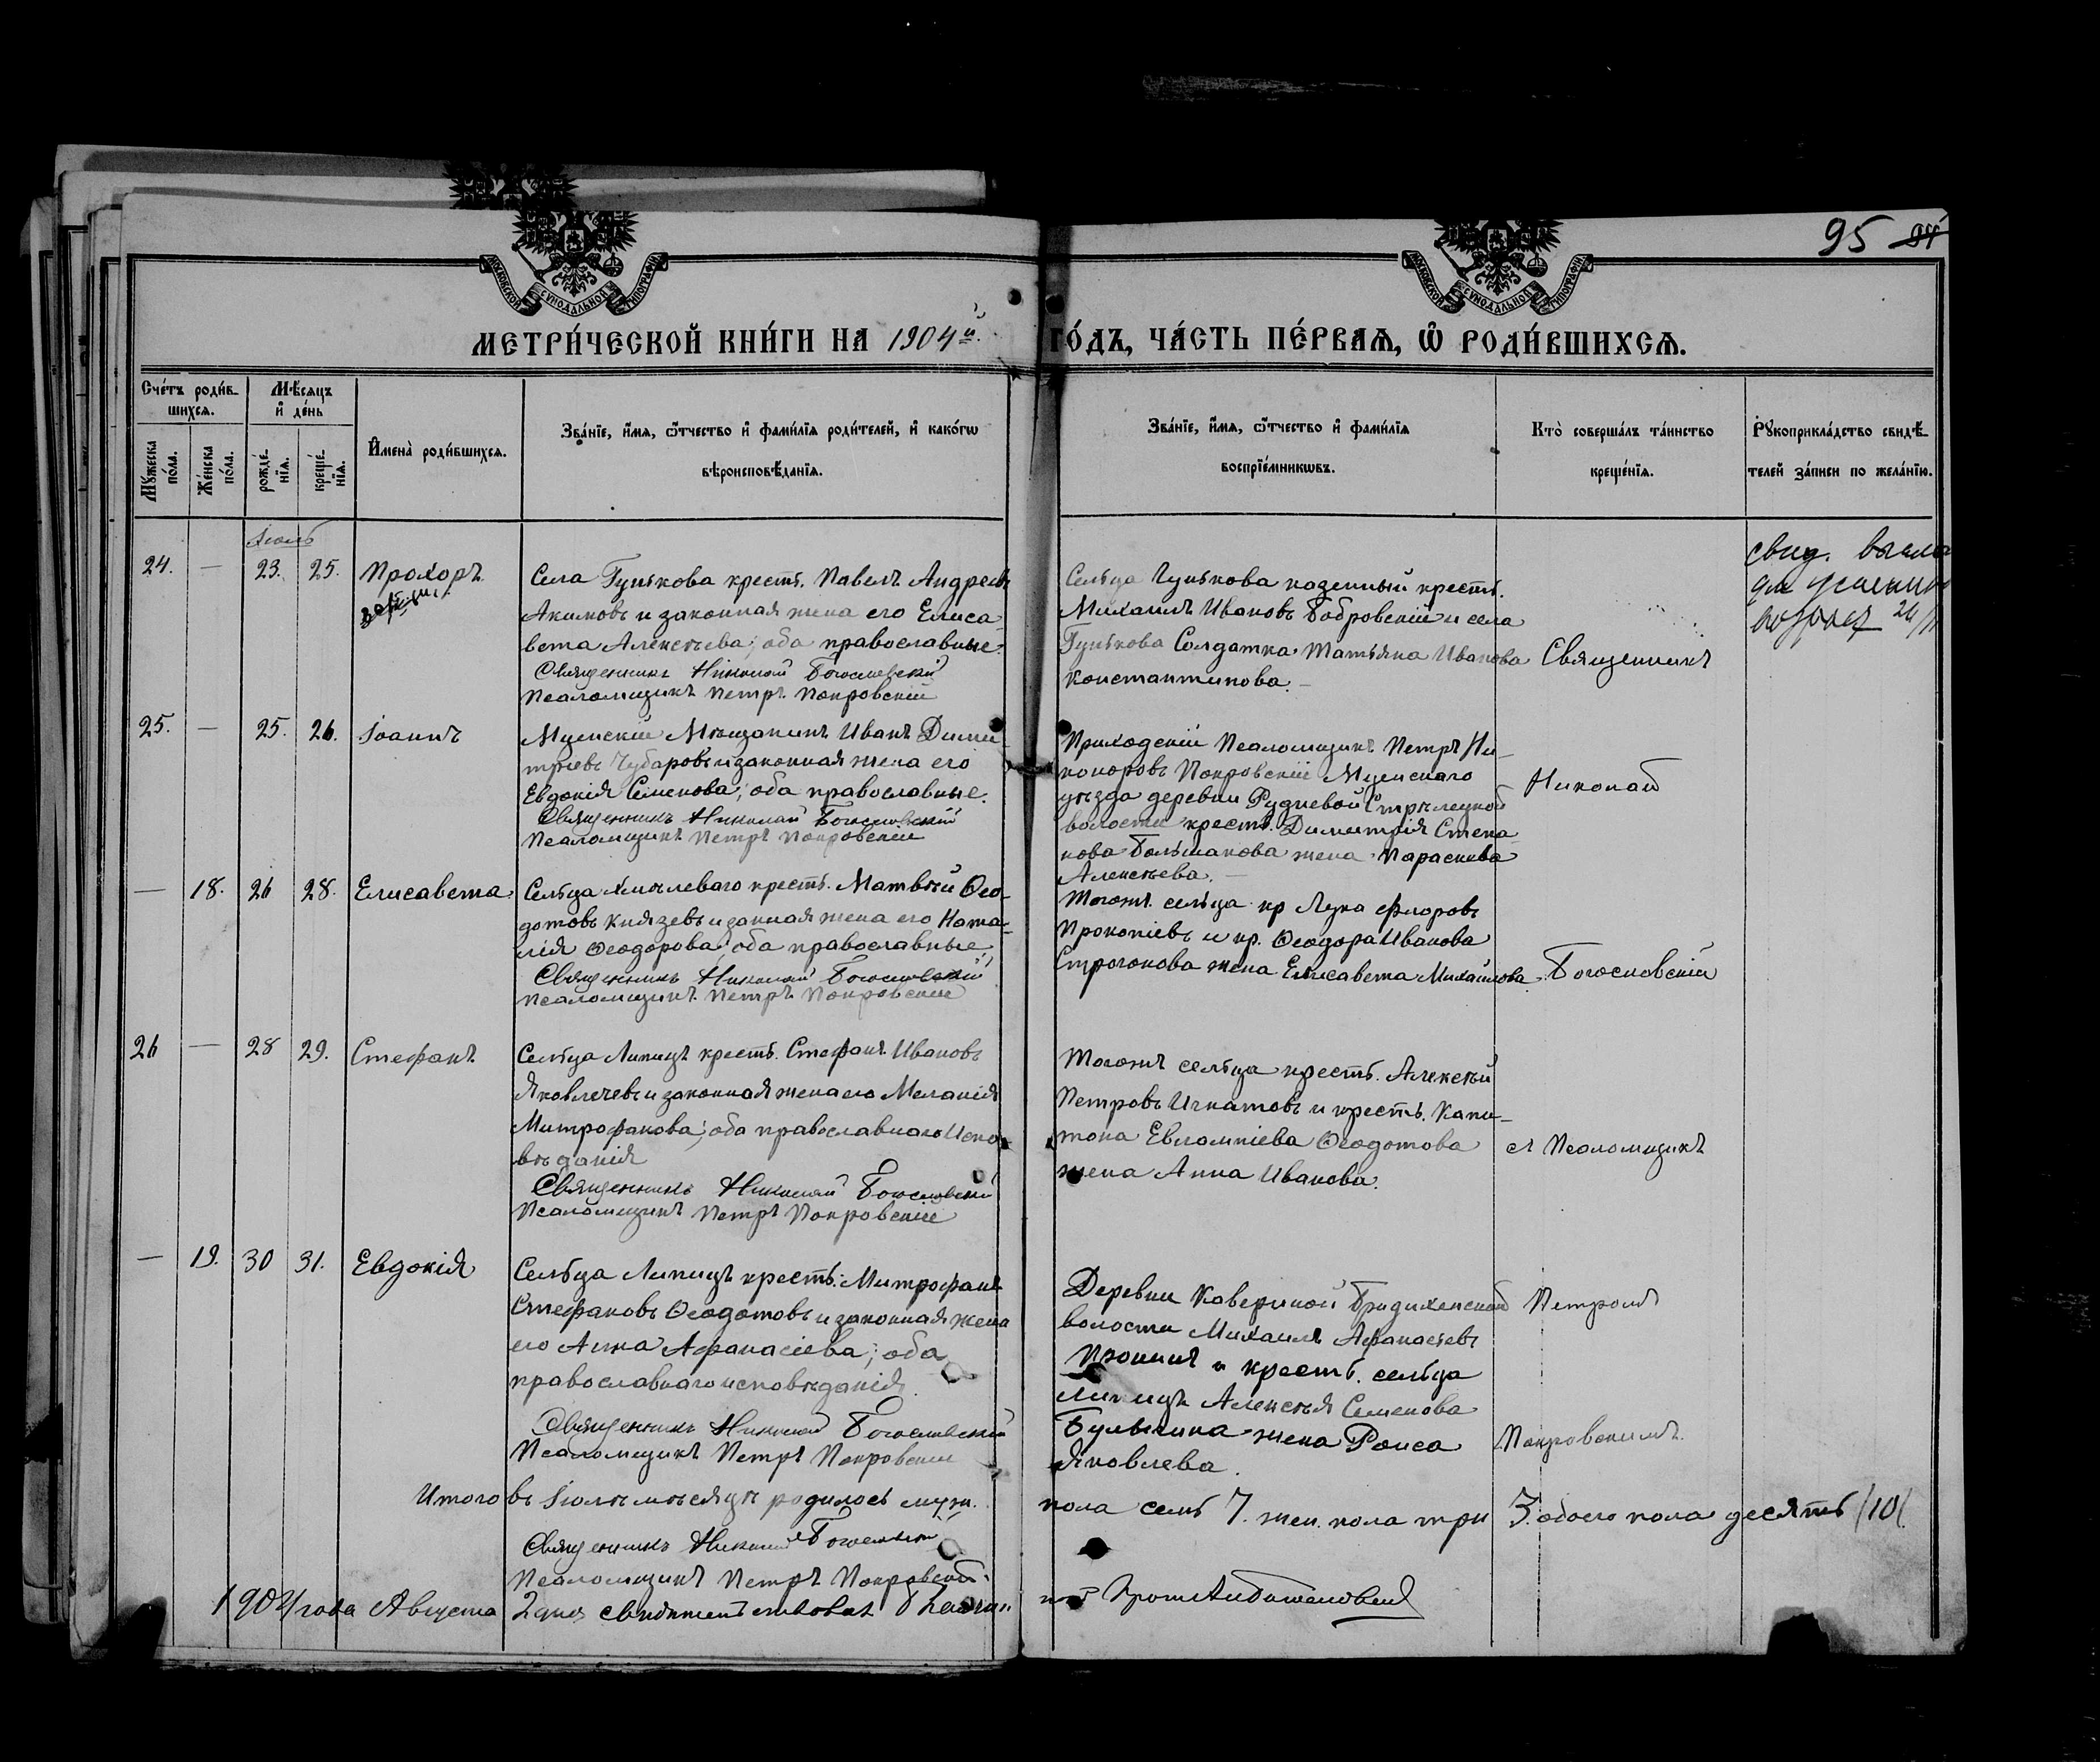 95 94
МОСКОВСКОЙ СѴНОДАЛЬНОЙ ТИПОГРАФІИ
МОСКОВСКОЙ СѴНОДАЛЬНОЙ ТИПОГРАФІИ
МЕТРИ́ЧЕСКОЙ КНИ́ГИ НА 1904й
ГО́ДЪ, ЧА́СТЬ ПЕ́РВАѦ, Ѡ҆ РОДИ́ВШИХСѦ.
Сче́тъ роди́в-
шихсѧ.
Мѣ́сѧцъ
и҆ де́нь
Мꙋ́жеска
по́ла.
Же́нска
по́ла.
рожде́-
нїѧ.
креще́-
нїѧ.
И҆мена̀ роди́вшихсѧ.
Зва́нїе, и҆́мѧ, ѻ҆́тчество и҆ фами́лїѧ роди́телей, и҆ како́гѡ
вѣроисповѣ́данїѧ.
Зва́нїе, и҆́мѧ, ѻ҆́тчество и҆ фами́лїѧ
воспрїе́мникѡвъ.
Кто̀ соверша́лъ та́инство
креще́нїѧ.
Рꙋкоприкла́дство свидѣ́-
телей за́писи по жела́нїю.
Іюль
24. — 23. 25. Прохоръ
Села Гунькова крестъ. Павелъ Андреевъ
Акимовъ и законная жена его Елиса-
вета Алексѣева; оба православные.
Священникъ Николай Богословскій
Псаломщикъ Петръ Покровскій
Сельца Гунькова казенный крестъ.
Михаилъ Ивановъ Бобровскій и села
Гунькова Солдатка Татьяна Иванова
Константинова. —
Священникъ
свид.
24/
25. — 25. 26. Іоаннъ
Мценскій Мѣщанинъ Иванъ Дими-
тріевъ Чубаровъ и законная жена его
Евдокія Семенова; оба православные.
Священникъ Николай Богословскій
Псаломщикъ Петръ Покровскій
Приходскій Псаломщикъ Петръ Ни-
каноровъ Покровскій Мценскаго
уѣзда деревни Рудневой Стрѣлецкой
волости крестъ. Димитрія Степа-
нова Большакова жена Параскева
Алексѣева. —
Николай
— 18. 26 28. Елисавета
Сельца Хмѣлеваго крестъ. Матвѣй Ѳео-
дотовъ Князевъ и законная жена его Ната-
лія Ѳеодорова; оба православные.
Священникъ Николай Богословскій
Псаломщикъ Петръ Покровскій
Тогожъ сельца кр Лука Флоровъ
Прокопіевъ и кр. Ѳеодора Иванова
Строгонова жена Елисавета Михайлова.
Богословскій
26 — 28 29. Стефанъ
Сельца Липицъ крестъ. Стефанъ Ивановъ
Яковлечевъ и законная жена его Меланія
Митрофанова; оба православнаго Испо-
вѣданія
Священникъ Николай Богословскій
Псаломщикъ Петръ Покровскій
Тогожъ сельца крестъ. Алексѣй
Петровъ Игнатовъ и крестъ. Капи-
тона Евлампіева Ѳеодотова
жена Анна Иванова.
съ Псаломщикъ
— 19. 30 31. Евдокія
Сельца Липицъ крестъ. Митрофанъ
Стефановъ Ѳеодотовъ и законная жена
его Анна Афанасіева; оба
православнаго исповѣданія.
Священникъ Николай Богословскій
Псаломщикъ Петръ Покровскій
Деревни Кавериной
волости Михаилъ Афанасьевъ
Пронинъ и крестъ. сельца
Липицъ Алексѣя Семенова
Булыгина жена Раиса
Яковлева.
Петромъ
Покровскимъ.
Итого въ Іюлѣ мѣсяцѣ родилось муж.
пола семь 7. жен. пола три 3. обоего пола десять (10).
Священникъ Николай Богословскій
Псаломщикъ Петръ Покровскій
1904 года Августа 2 дня свидѣтельствовалъ